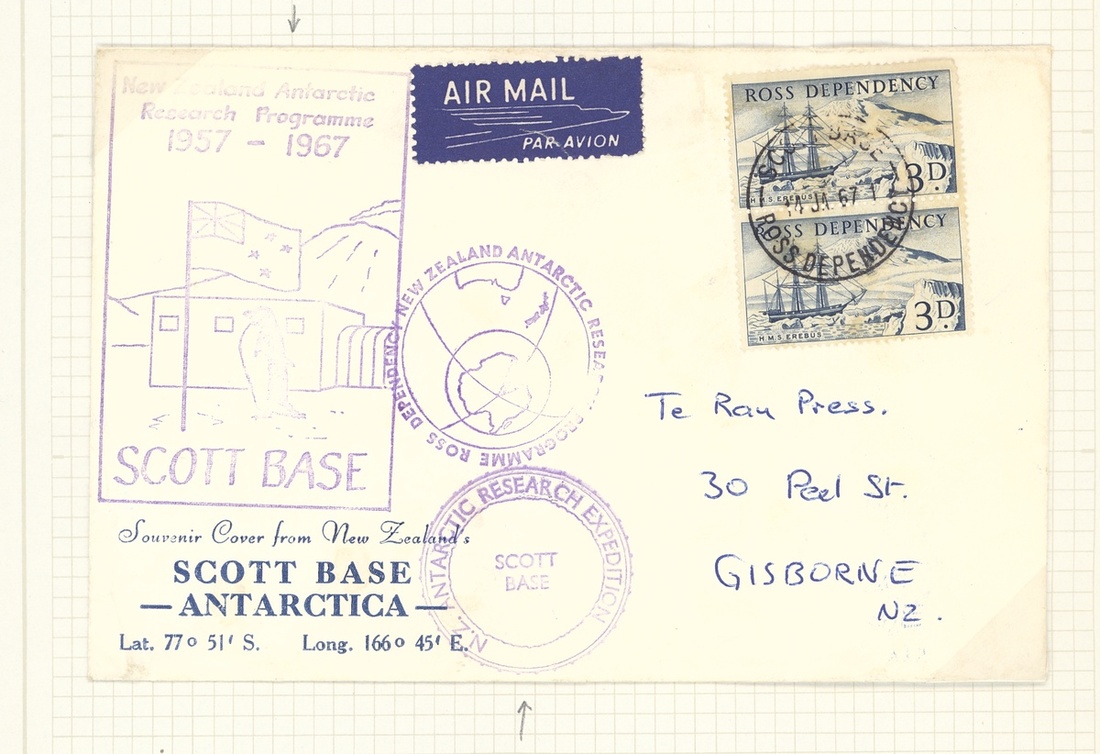 New Zealand Antarctic
Research Programme
1957 - 1967
SCOTT BASE
AIR MAIL
PAR AVION
ROSS DEPENDENCY
3D.
H.M.S EREBUS
BASE
14 JA 67
ROSS DEPENDENCY
ROSS DEPENDENCY
3D.
H.M.S EREBUS
ROSS DEPENDENCY NEW ZEALAND ANTARCTIC RESEA PROGRAMME
N.Z. ANTARCTIC RESEARCH EXPEDITION
SCOTT
BASE
Souvenir Cover from New Zealand's
SCOTT BASE
—ANTARCTICA—
Lat. 77o 51' S. Long. 166o 45' E.
Te Rau Press.
30 Peel St.
GISBORNE
NZ.